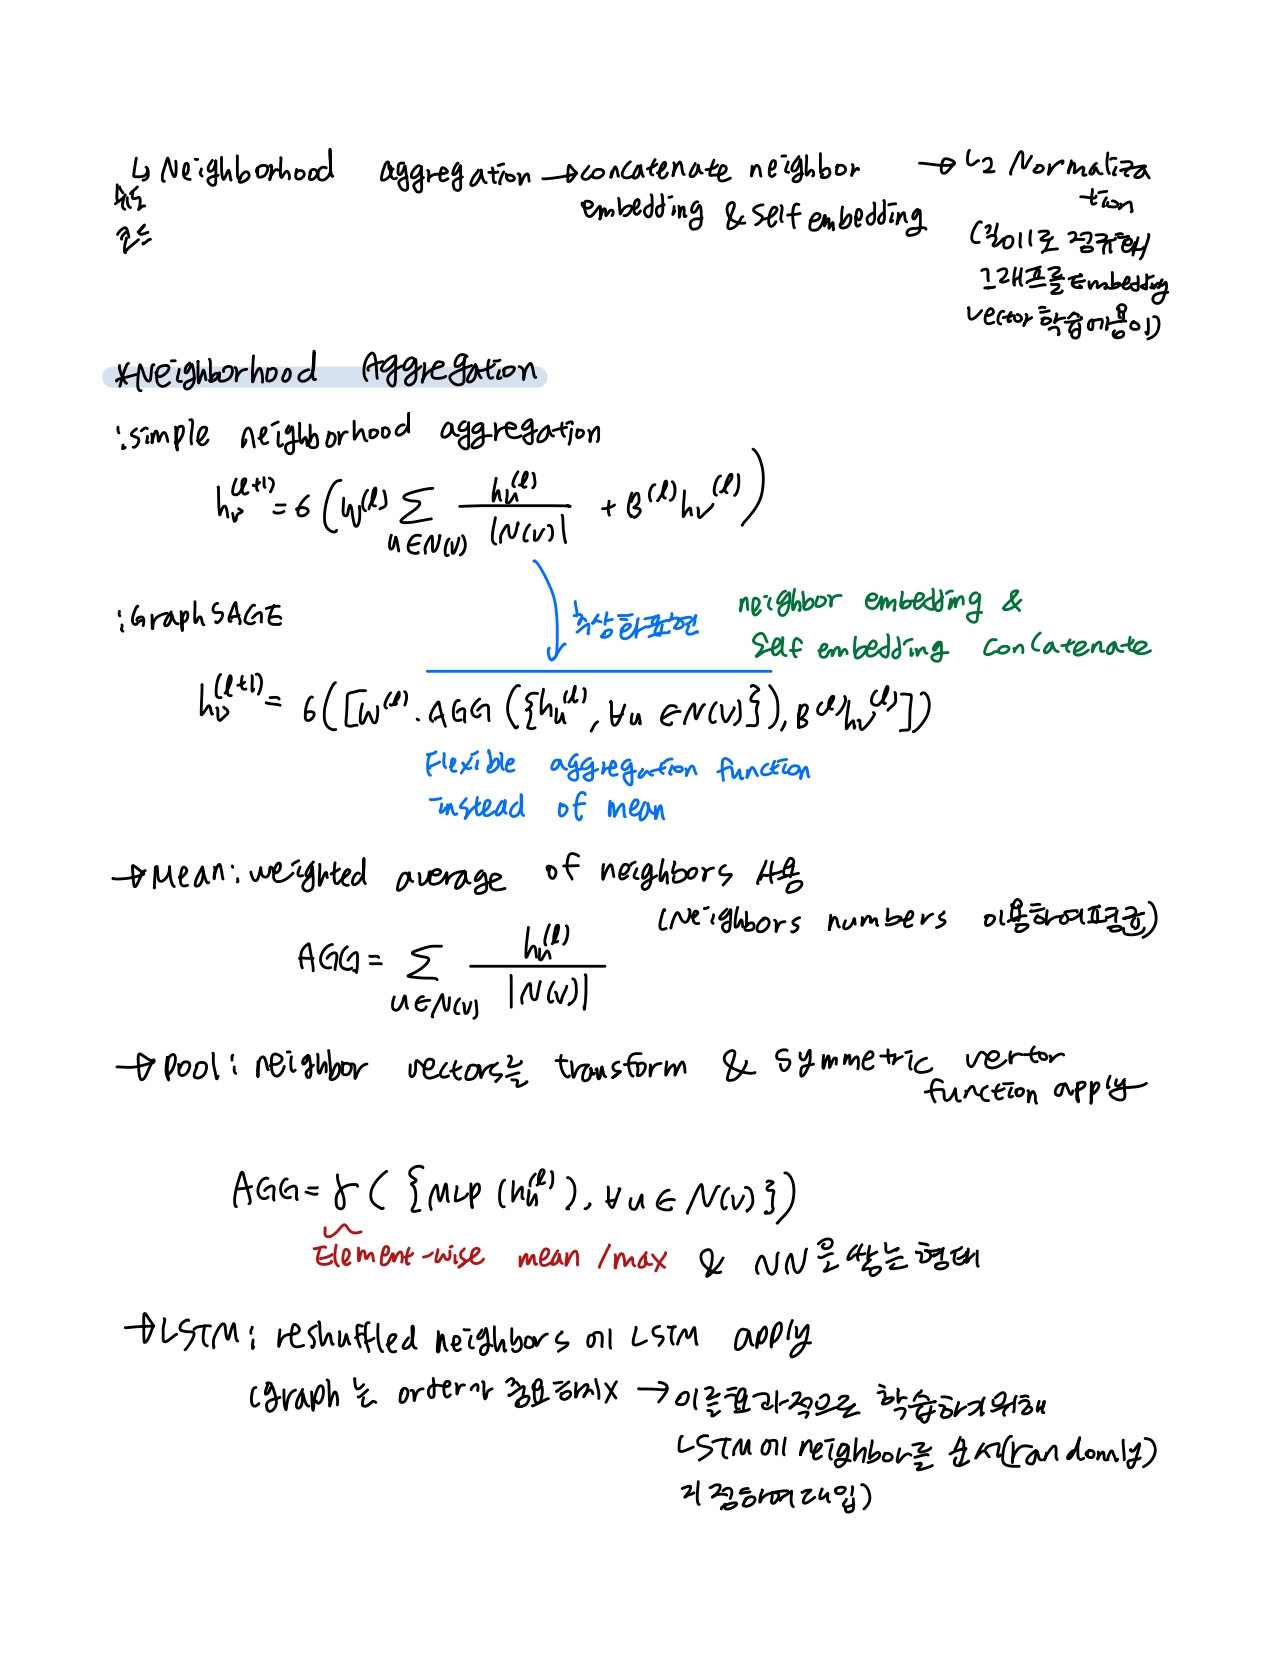 ↳ Neighborhood aggregation → concatenate neighbor → L2 Normaliza
수도 embedding & Self embedding tion
코드 (길이로 정규화해
그래프를 Embedding
vector 학습에 용이)
*Neighborhood Aggregation
: simple neighborhood aggregation
h_v^(l+1) = σ ( W^(l) Σ_{u∈N(v)} h_u^(l) / |N(v)| + B^(l) h_v^(l) )
: GraphSAGE
추상화 표현
neighbor embedding &
Self embedding concatenate
h_v^(l+1) = σ([W^(l) · AGG ({h_u^(l), ∀u ∈ N(v)}), B^(l) h_v^(l)])
Flexible aggregation function
instead of mean
→ Mean : weighted average of neighbors 사용
(Neighbors numbers 이용하여 평균)
AGG = Σ_{u∈N(v)} h_u^(l) / |N(v)|
→ Pool : neighbor vectors는 transform & symmetric vertor
function apply
AGG = γ ( {MLP (h_u^(l)), ∀u ∈ N(v)})
Element-wise mean / max & NN 쌓는 형태
→ LSTM : reshuffled neighbors 에 LSTM apply
(graph는 order가 중요하지 x → 이를 효과적으로 학습하기 위해
LSTM에 neighbor를 순서(randomly)
지정하여 대입)